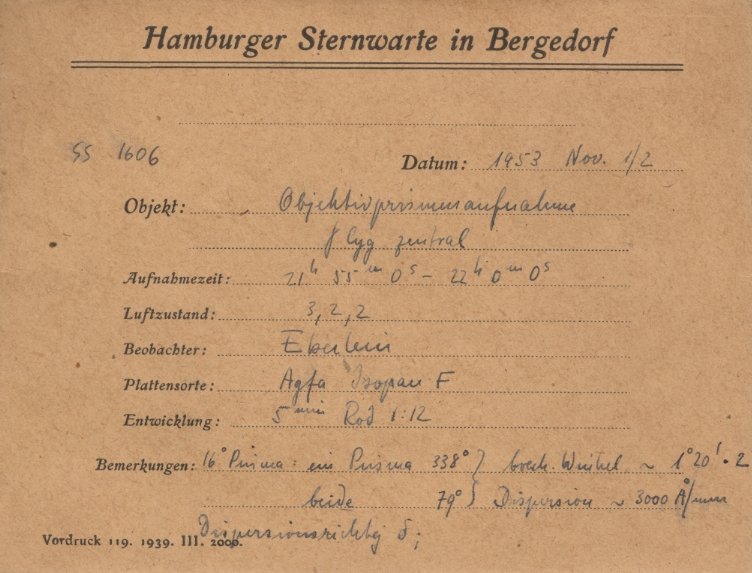 Hamburger Sternwarte in Bergedorf
SS 1606
Datum: 1953 Nov. 1/2
Objekt: Objektivprismenaufnahme
γ Cyg zentral
Aufnahmezeit: 21ʰ 55ᵐ 0ˢ – 22ʰ 0ᵐ 0ˢ
Luftzustand: 3, 2, 2
Beobachter: Eberlein
Plattensorte: Agfa Isopan F
Entwicklung: 5 min Rod 1:12
Bemerkungen: 16° Prisma: ein Prisma 338° } brech. Winkel ~ 1°20' · 2
beide 79° } Dispersion ~ 3000 Å/mm
Dispersionsrichtg δ;
Vordruck 119. 1939. III. 2000.